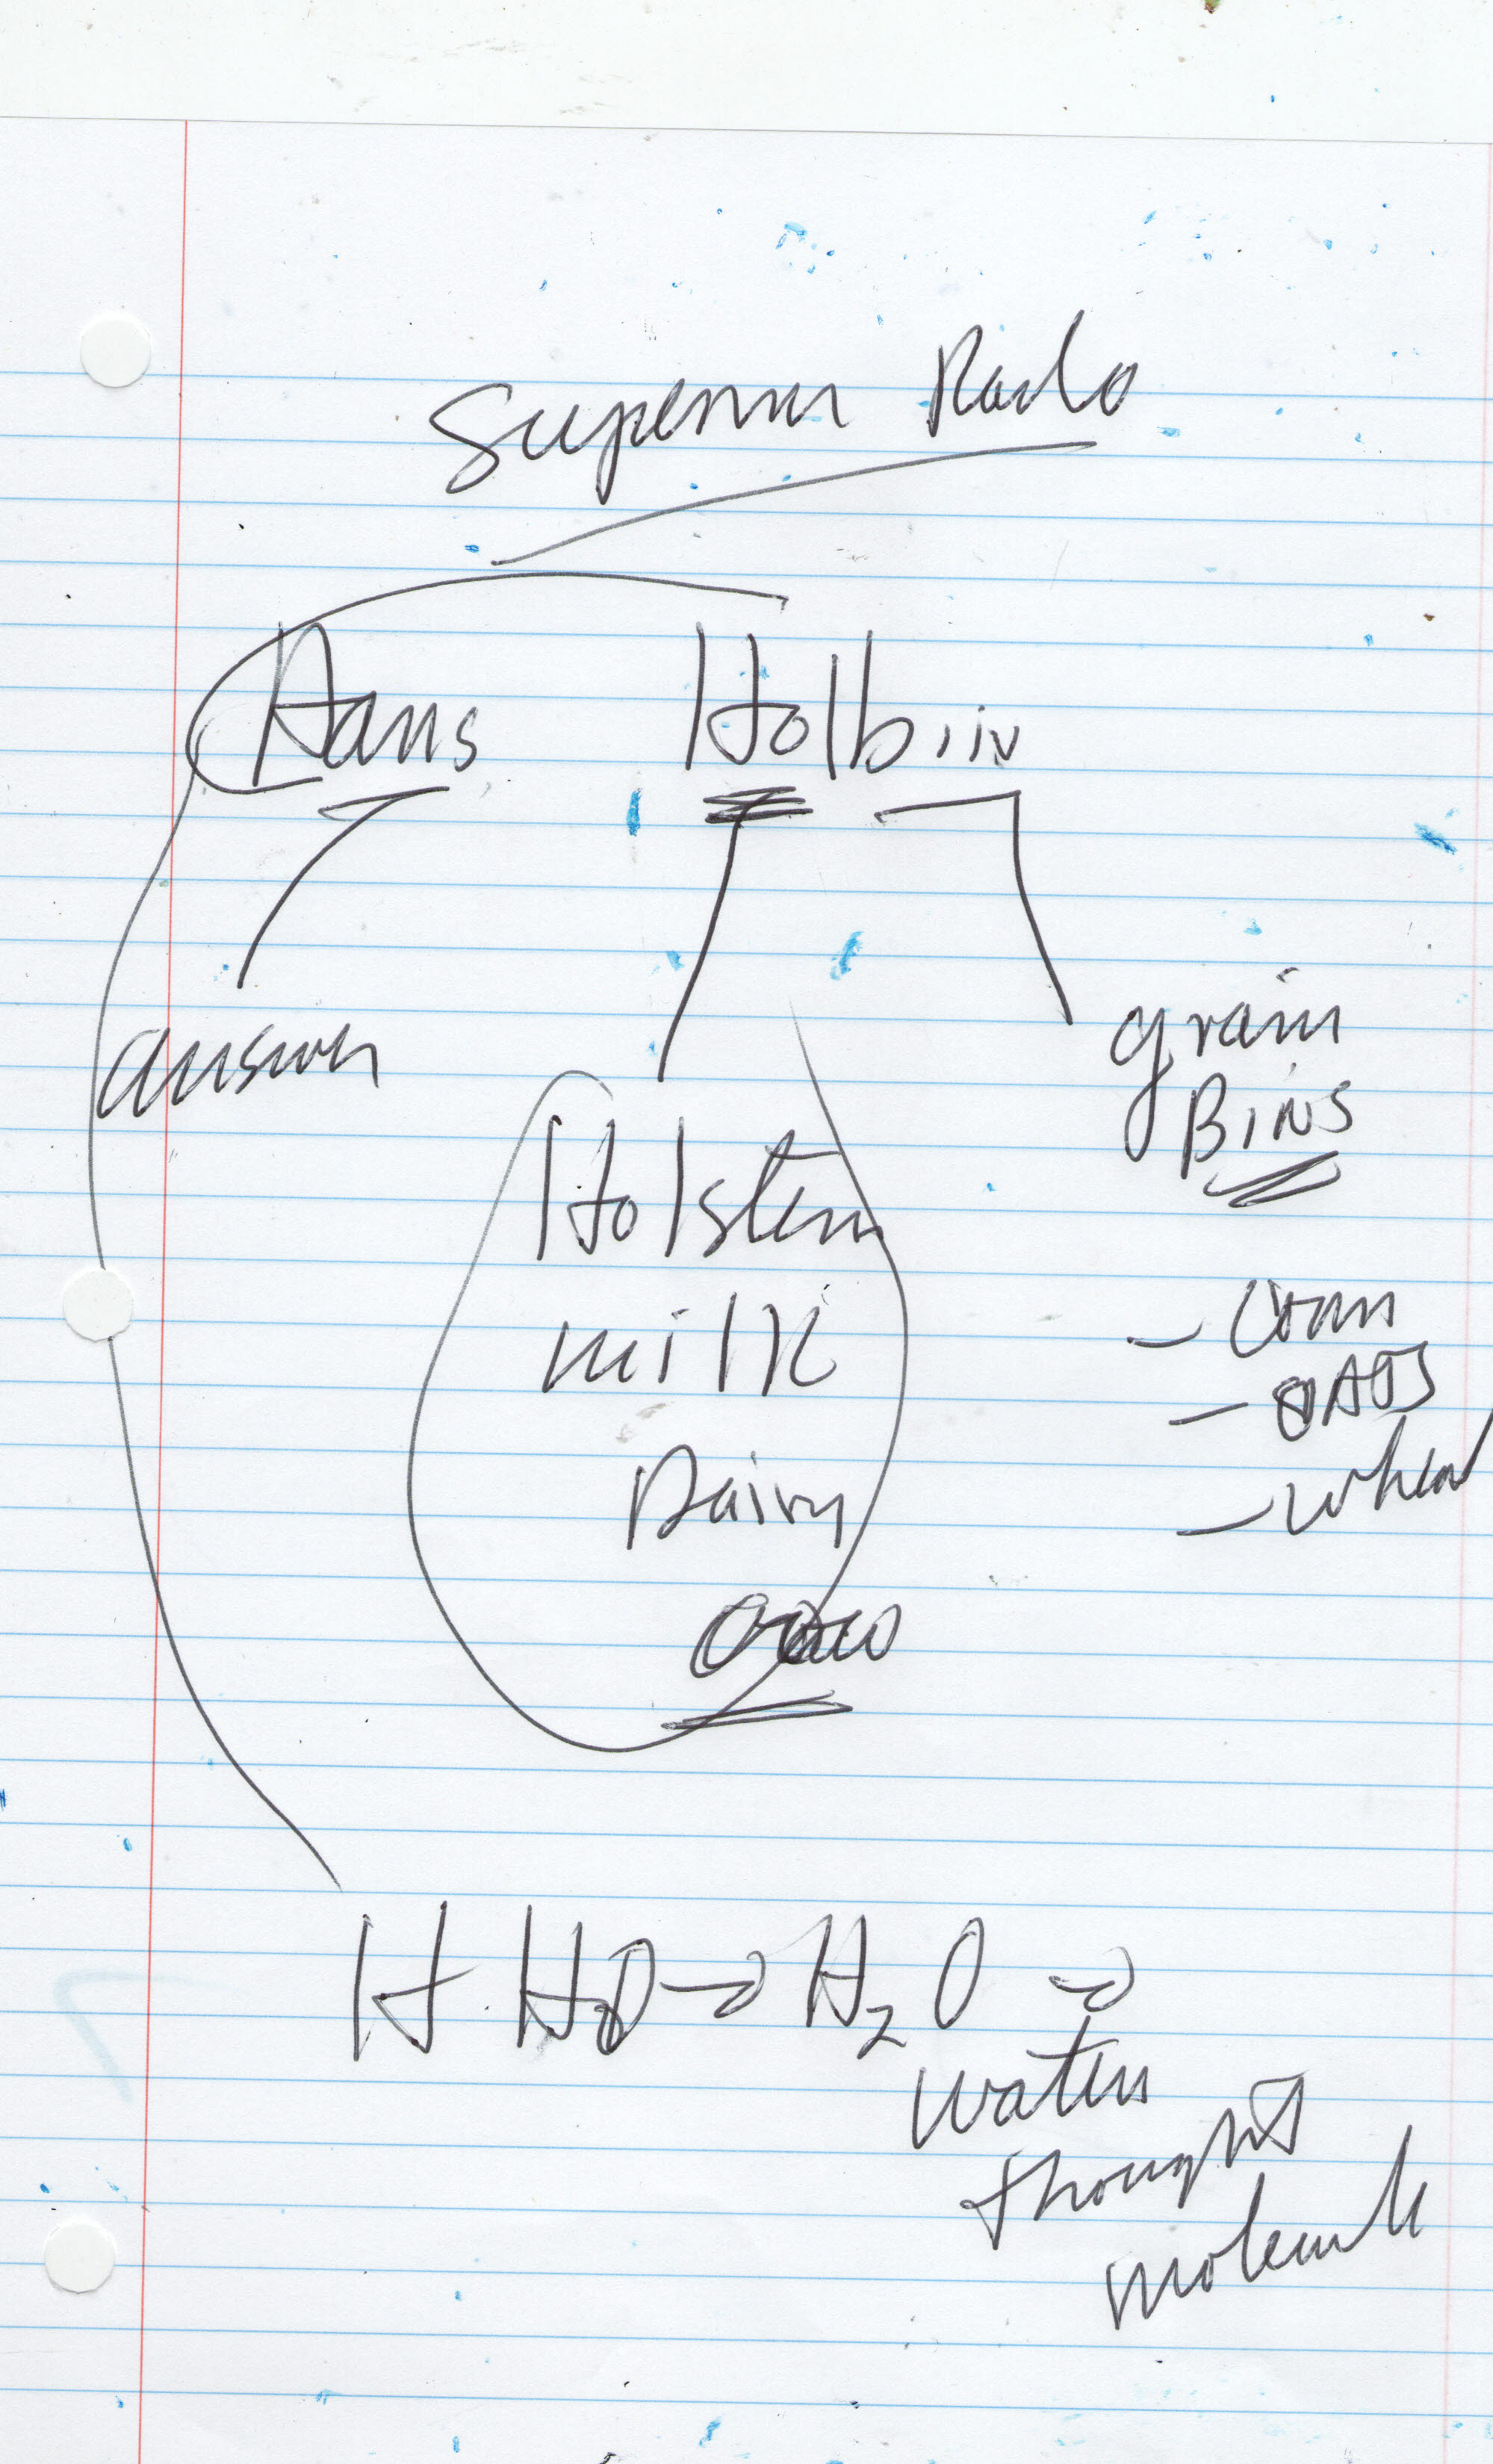 Superior Radio
Hans Holbiin
answer
grain
Bins
Holstein
milk
Dairy
cow
- Corn
- OATS
- wheat
H. HO → H2O →
water
thought
molecule